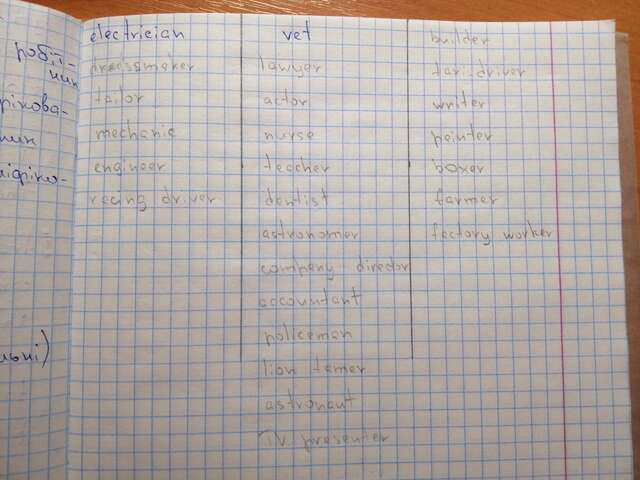 робіт-
ник
рікова-
ник
ліфіко-
льні)
electrician
dressmaker
tailor
mechanic
engineer
racing driver
vet
lawyer
actor
nurse
teacher
dentist
astronomer
company director
accountant
policeman
lion tamer
astronaut
TV presenter
builder
taxi driver
writer
painter
boxer
farmer
factory worker